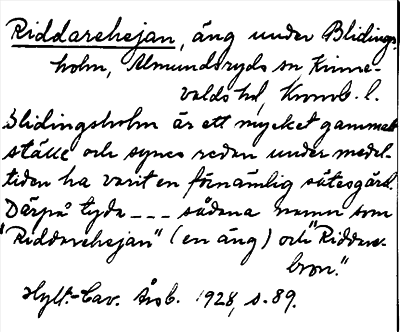 Riddarehejan, äng under Blidings-
holm, Almundsryds sn, Kinne-
valds hd, Kronob. l.
Blidingsholm är ett mycket gammalt
ställe och synes redan under medel-
tiden ha varit en förnämlig sätesgård.
Därpå tyda --- sådana namn som
"Riddarehejan" (en äng) och "Riddare-
bron."
Hylt.-Cav. Årsb. 1928, s. 89.